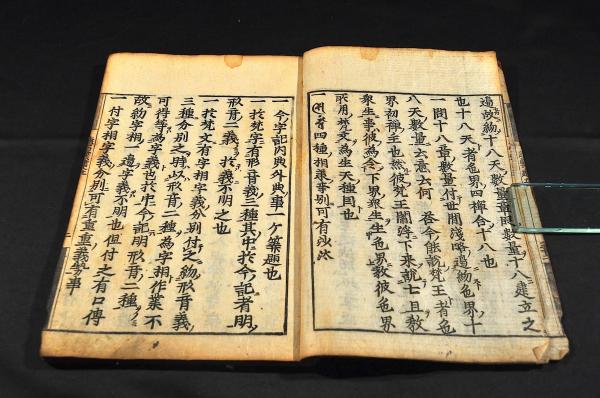 遍故約十八天數量章門數量十八建立之
也十八天者色界四禪合十八也
一問十八章數量付世間淺略遍約色界十
八天數量云意云何 答今能說梵王者色
界初禪主也然彼梵王閻浮下來說七旦教
衆生事彼為令下界衆生生色界教彼色界
所用梵文為生天種同也
四種相承事別可有沙汰
一今字記内典外典事一ケ築題也
一於梵字有形音義三種其中於今記者明
形音二義於義不明之也
一於梵文有字相字義分別付之約形音義
三種分別之時以形音二種為字相作業不
可得等為字義也於中今記明形音二種
故約字相一邊字義不明也但付之有口傳
一付字相字義分別可有重重義勢事